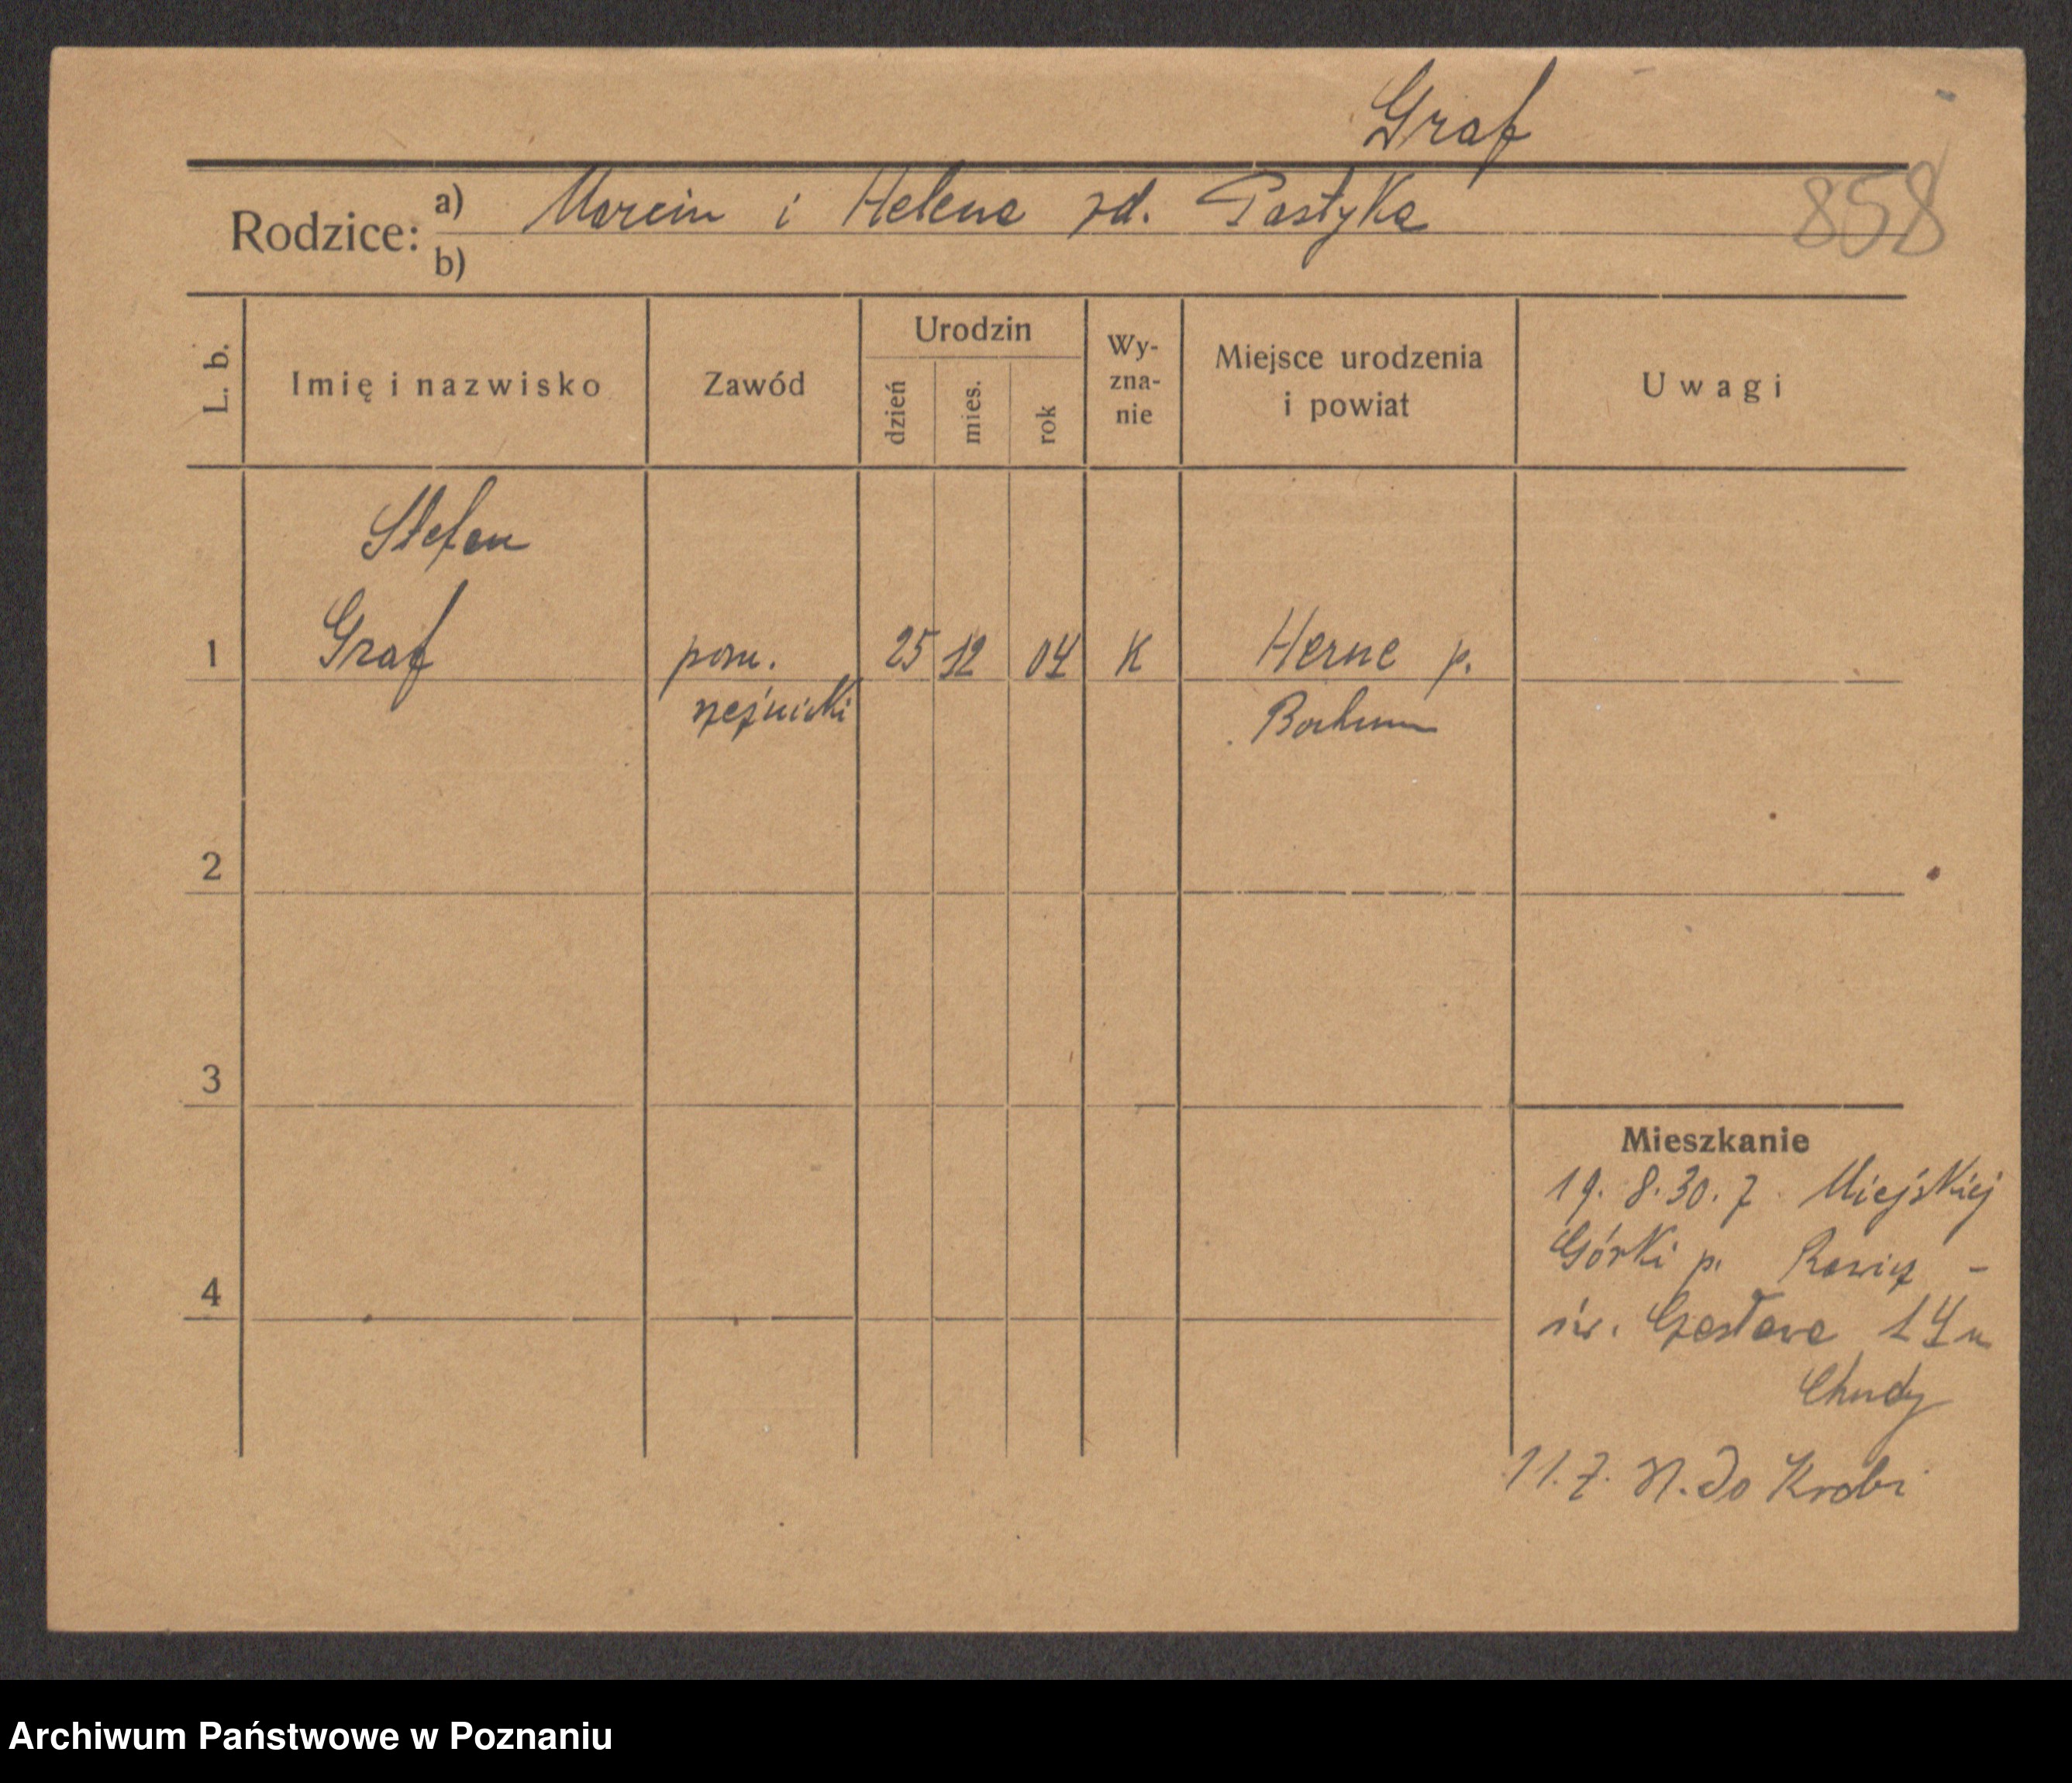 Graf
Rodzice: a) Marcin i Helena zd. Pastyka 858
b)
L. b. Imię i nazwisko Zawód Urodzin dzień mies. rok Wy-zna-nie Miejsce urodzenia i powiat Uwagi
Stefan
1 Graf pom. 25 12 04 K Herne p.
rzeźnicki Bochum
2
3
Mieszkanie
19. 8. 30. z Miejskiej
Górki p. Rawicz -
4
św. Czesława 14 u
Chudy
11. 7. 31. do Krobi
Archiwum Państwowe w Poznaniu